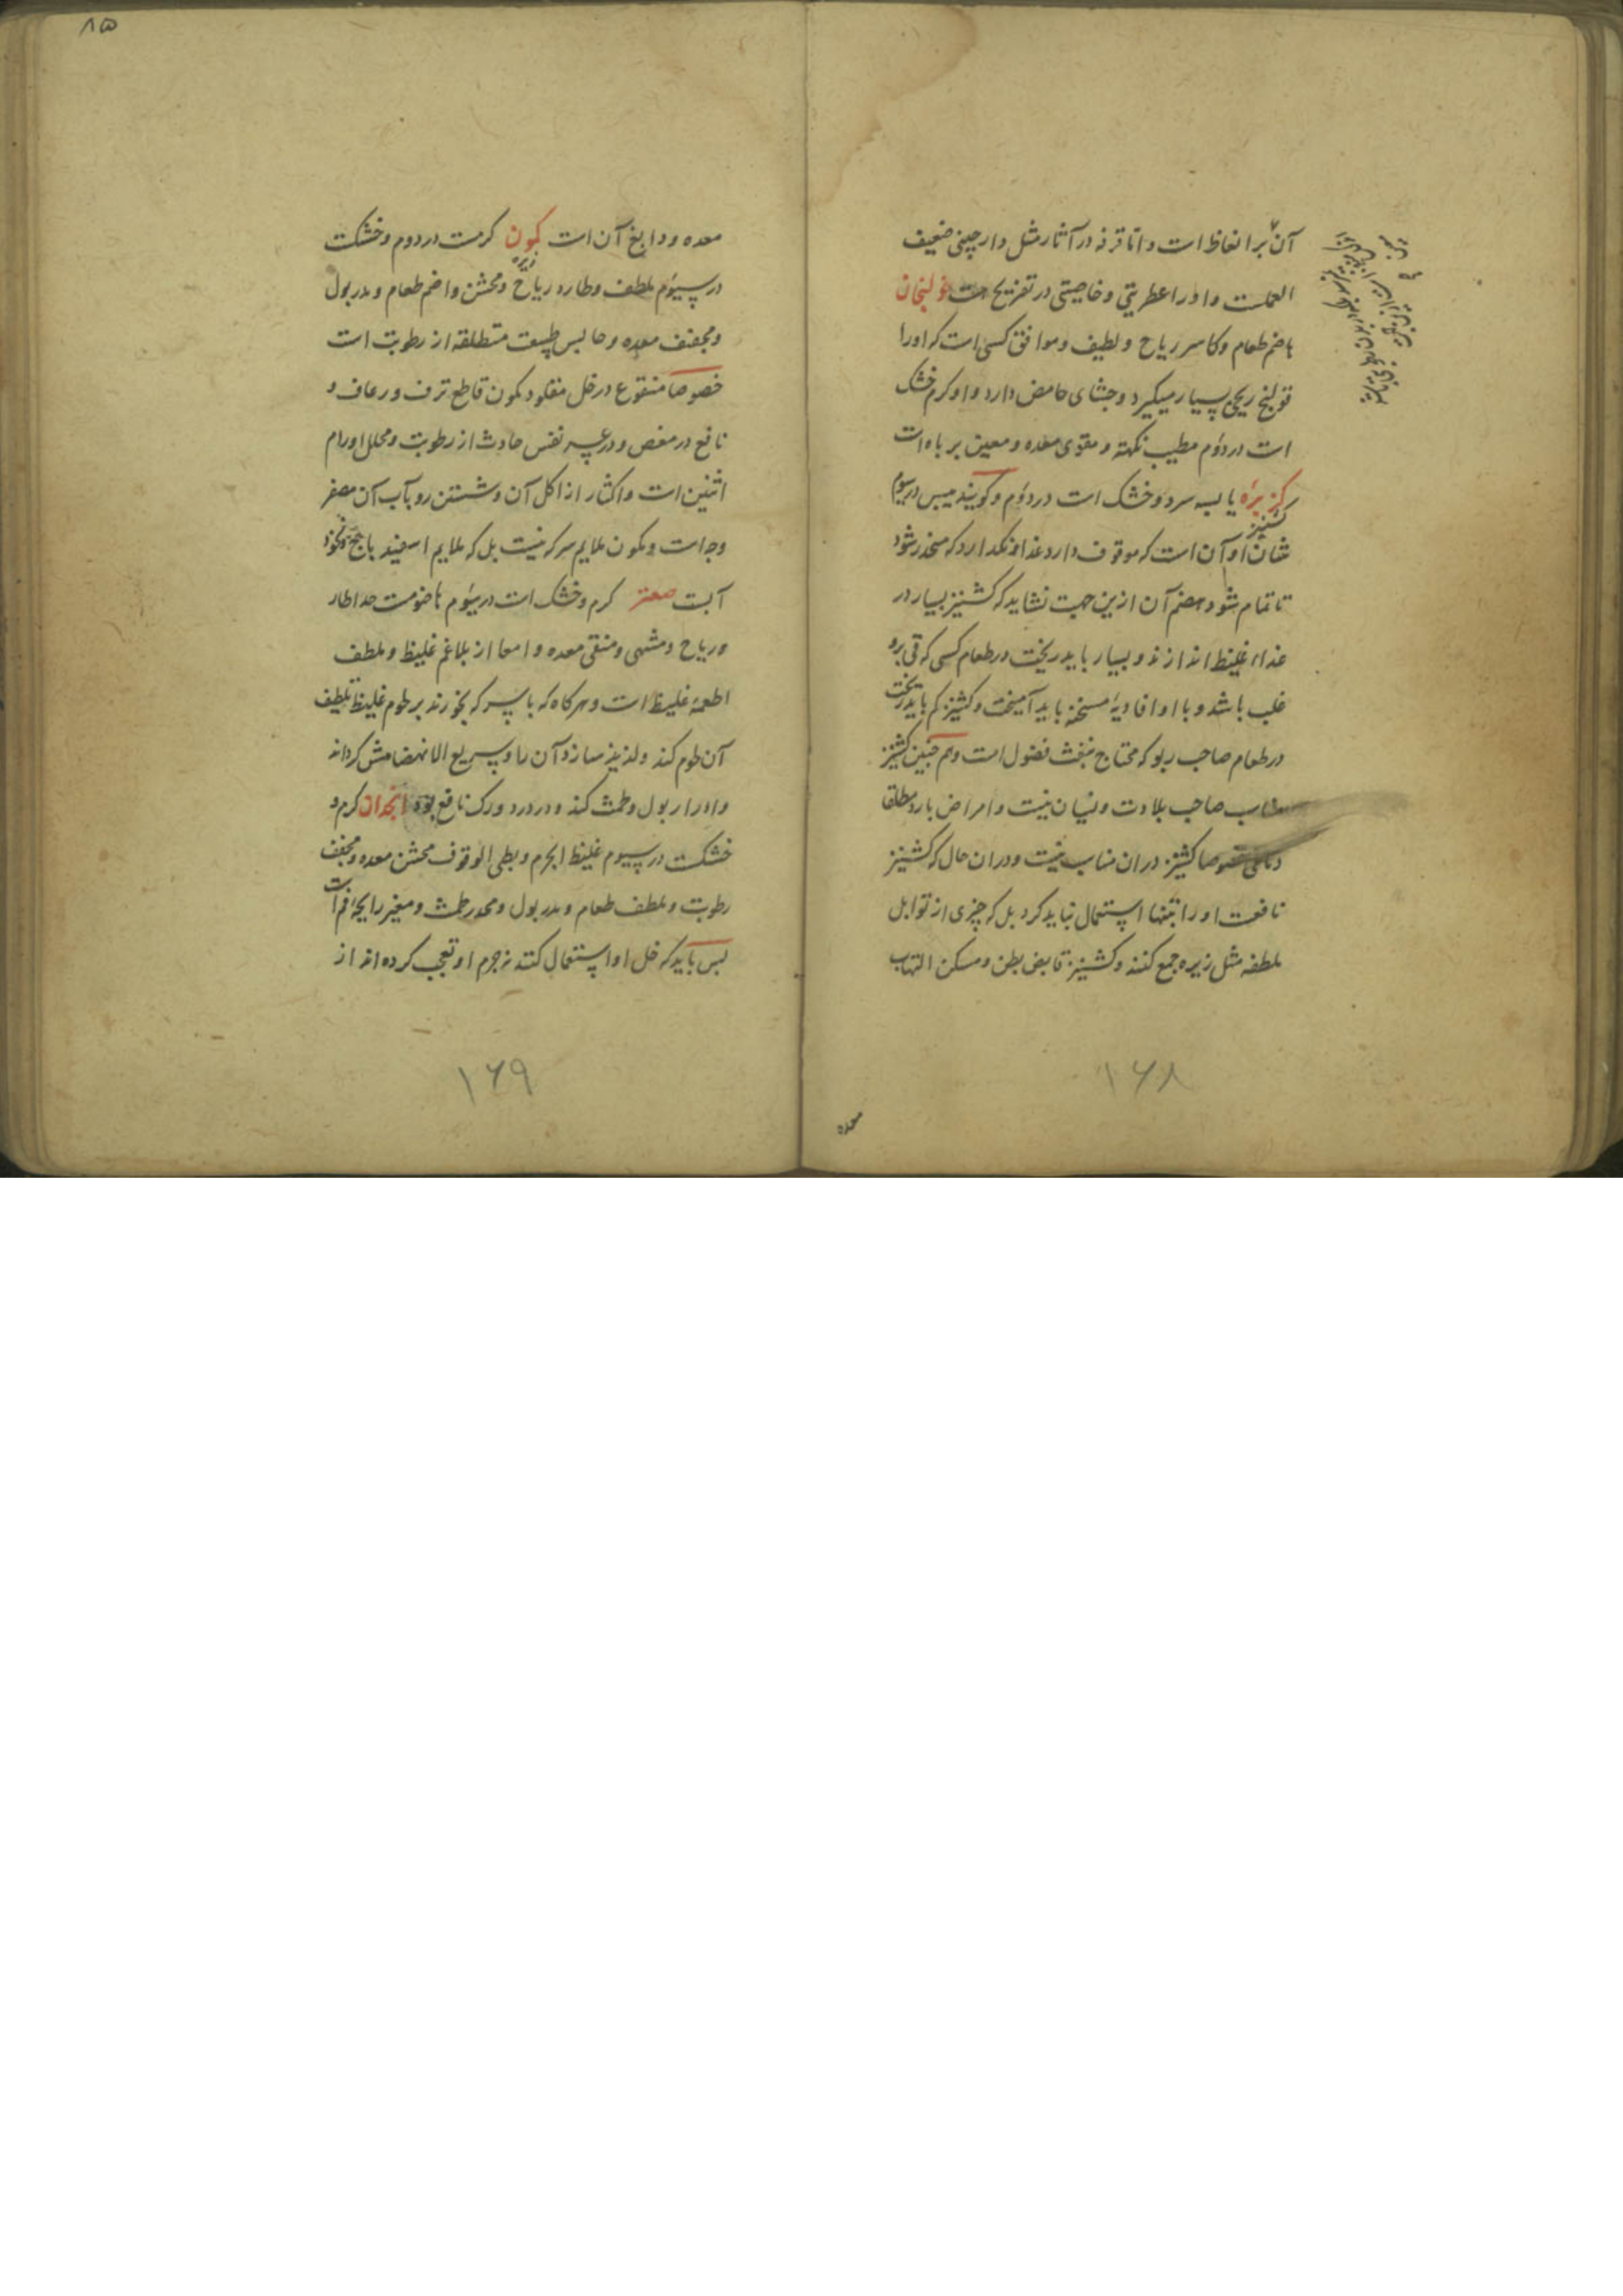 آن بر انعاظ است و اما قرفه در آثار مثل دارچینی ضعیف
العملست و او را عطریتی و خاصیتی در تفریح هست خولنجان
هاضم طعام و کاسر ریاح و لطیف و موافق کسی است که او را
قولنج ریحی بسیار میگیرد و جشای حامض دارد و او کرم خشک
است در دوم مطیب نکهة و مقوی معده و معین بر باه است
کزبره یابسه سرد و خشک است در دوم و کویند یبس در سیوم
کشنیز
شان او آن است که موقوف دارد غذا و نکه دارد که منحدر شود
تا تمام شود هضم آن ازین جهت نشاید که کشنیز بسیار در
غذاء غلیظ اندازند و بسیار باید ریخت در طعام کسی که قی برو
غلب باشد و با او افاویهٔ مسخنه باید آمیخت و کشنیز کم باید ریخت
در طعام صاحب ربو که محتاج بنفث فضول است و هم چنین کشنیز
مناسب صاحب بلادت و نسیان نیست و امراض بارد مطلقا
دماغی خصوصا کشنیز دران مناسب نیست و دران حال که کشنیز
نافعست او را تنها استعمال نباید کرد بل که چیزی از توابل
ملطفه مثل زیره جمع کنند و کشنیز قابض بطن و مسکن التهاب
۱۶۸
معده
۸۵
معده و دابغ آن است کمون کرمست در دوم و خشکست
زیره
در سیوم ملطف و طارد ریاح و محشن و اضم طعام و مدر بول
و مجفف معده و حابس طبیعت منطلقه از رطوبت است
خصوصا منقوع در خل مقلو و کمون قاطع نزف و رعاف و
نافع در مغص و در عسر نفس حادث از رطوبت و محلل اورام
انثیین است و اکثار از اکل آن و شستن رو بآب آن مصفر
وجه است و کمون ملایم سرکه نیست بل که ملایم اسفیدباج و نخود
آبست صعتر کرم و خشک است در سیوم هاضومست جدا طارد
ریاح و مشهی و منقی معده و امعا از بلاغم غلیظ و ملطف
اطعمهٔ غلیظ است و هرکاه که با سرکه بخورند بر لحوم غلیظ تلطیف
آن لحوم کند و لذیذ سازد آن را و سریع الانهضامش کرداند
و ادرار بول و طمث کند و در درد ورک نافع بود انجدان کرم و
خشکست در سیوم غلیظ الجرم و بطی الوقوف محشن معده و مجفف
رطوبت و ملطف طعام و مدر بول و محدر طمث و مغیر رایحهٔ فم است
پس باید که خل او استعمال کنند نه جرم او و تعجب کرده اند از
۱۶۹